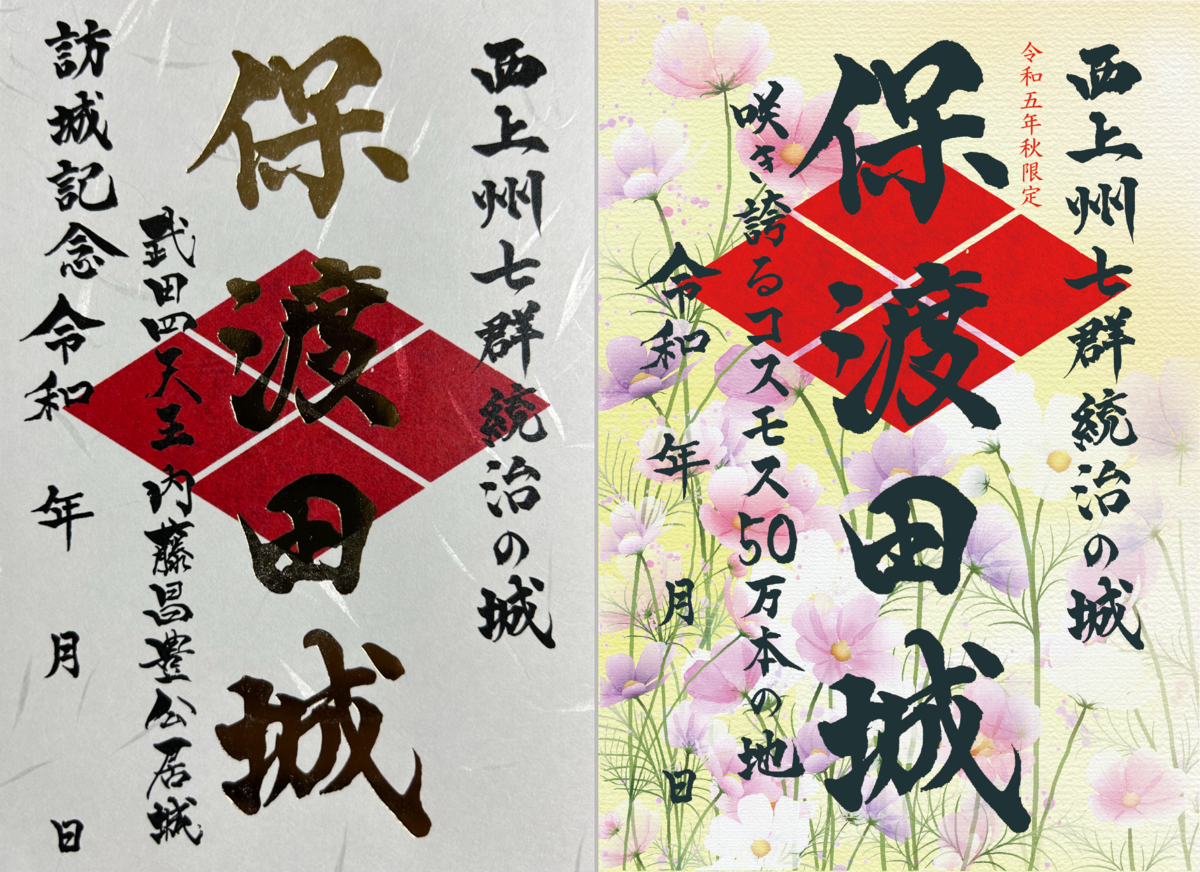 西上州七群統治の城
保渡田城
武田四天王 内藤昌豊公居城
訪城記念 令和 年 月 日
西上州七群統治の城
令和五年秋限定
保渡田城
咲き誇るコスモス50万本の地
令和 年 月 日